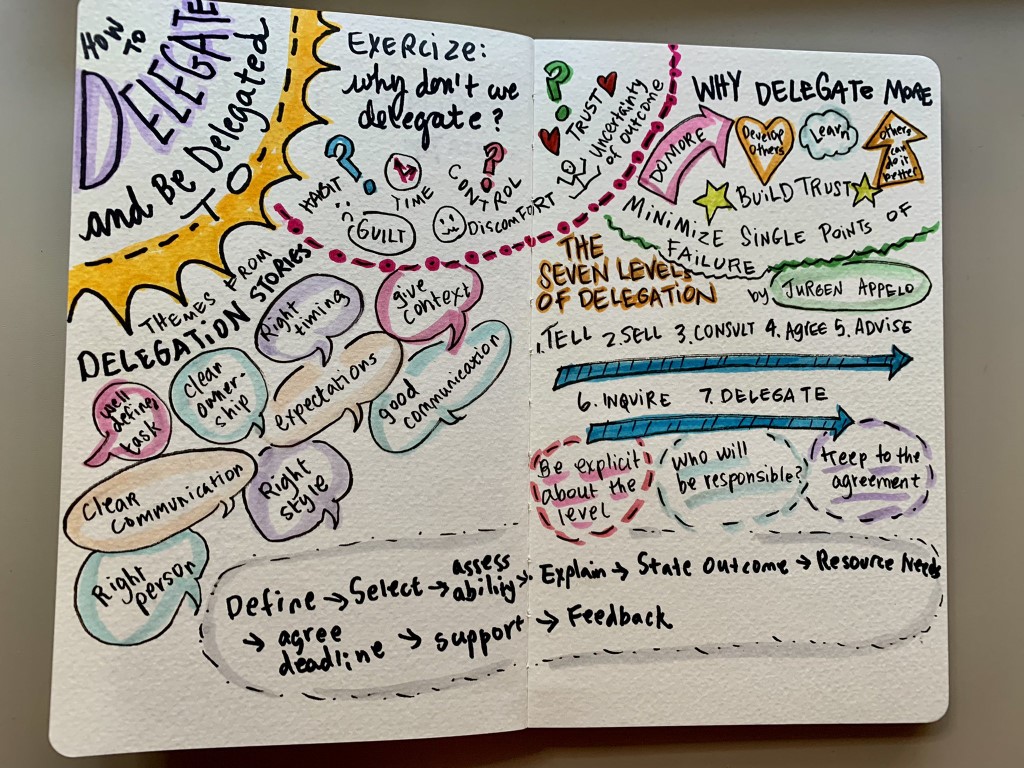 HOW
TO
DELEGATE
and Be Delegated
TO
EXERCIZE:
why don't we
delegate?
HABIT
TIME
CONTROL
GUILT
DISCOMFORT
TRUST
Uncertainty
of outcome
WHY DELEGATE MORE
DO MORE
Develop
Others
Learn
Others
can
do it
better
BUILD TRUST
MINIMIZE SINGLE POINTS OF
FAILURE
THEMES FROM
DELEGATION STORIES
Right
timing
give
context
well
define
task
clear
owner-
ship
expectations
good
communication
clear
communication
Right
style
Right
person
THE
SEVEN LEVELS
OF DELEGATION
by JURGEN APPELO
1. TELL 2. SELL 3. CONSULT 4. AGREE 5. ADVISE
6. INQUIRE 7. DELEGATE
Be explicit
about the
level
Who will
be responsible?
Keep to the
agreement
Define → Select → assess ability → Explain → State Outcome → Resource Needs
→ agree deadline → support → Feedback